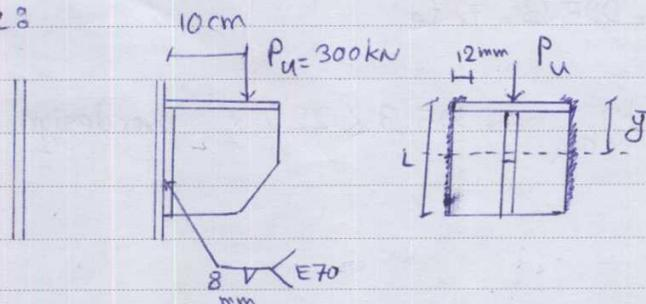 2:
10cm
Pu = 300KN
12mm
Pu
L
ȳ
8
mm
E70